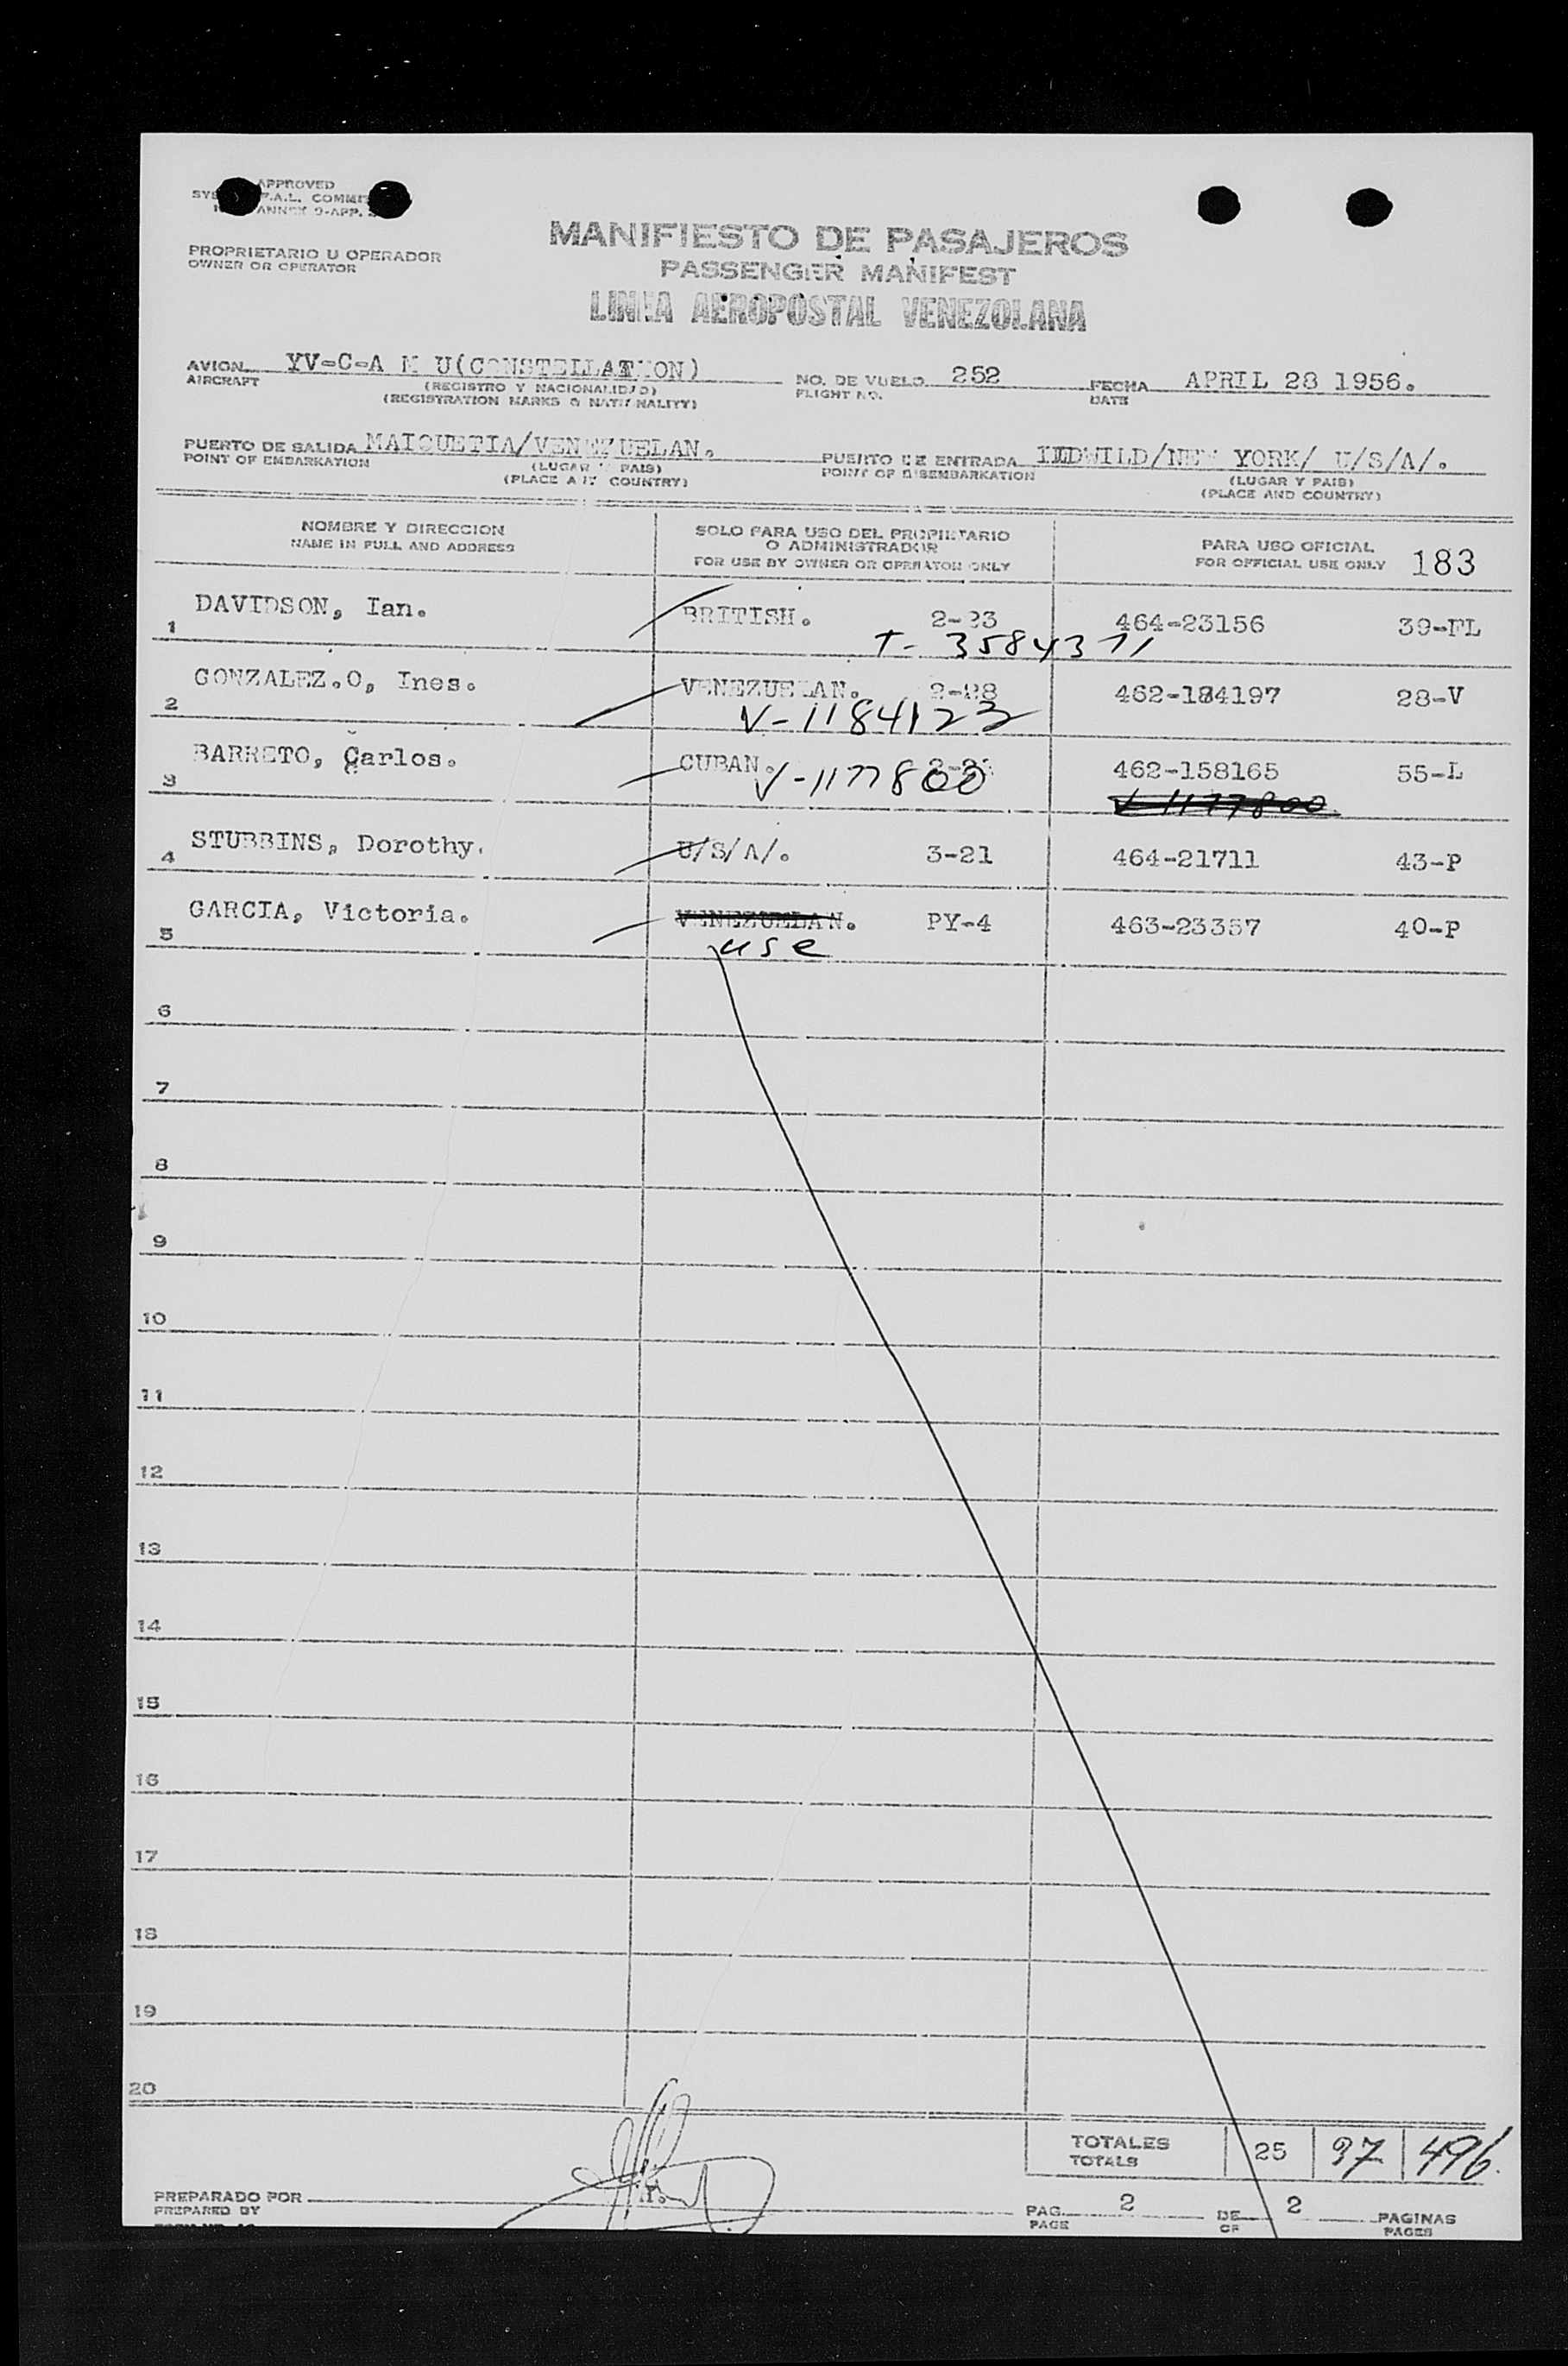 APPROVED
F.A.L.
ANNEX 9-APP.
MANIFIESTO DE PASAJEROS
PASSENGER MANIFEST
LINEA AEROPOSTAL VENEZOLANA
PROPRIETARIO U OPERADOR
OWNER OR OPERATOR
AVION YV-C-A M U(CONSTELLATION) NO. DE VUELO 252 FECHA APRIL 28 1956.
AIRCRAFT (REGISTRO Y NACIONALIDAD) FLIGHT NO. DATE
(REGISTRATION MARKS & NATIONALITY)
PUERTO DE SALIDA MAIQUETIA/VENEZUELAN. PUERTO DE ENTRADA IDLDWILD/NEW YORK/ U/S/A/.
POINT OF EMBARKATION (LUGAR Y PAIS) POINT OF DISEMBARKATION (LUGAR Y PAIS)
(PLACE AND COUNTRY) (PLACE AND COUNTRY)
NOMBRE Y DIRECCION SOLO PARA USO DEL PROPIETARIO PARA USO OFICIAL 183
NAME IN FULL AND ADDRESS O ADMINISTRADOR FOR OFFICIAL USE ONLY
FOR USE BY OWNER OR OPERATOR ONLY
1 DAVIDSON, Ian. BRITISH. 2-23 464-23156 39-FL
T- 3584371
2 GONZALEZ.O, Ines. VENEZUELAN. 2-28 462-184197 28-V
V-1184123
3 BARRETO, Carlos. CUBAN. 462-158165 55-L
V-1177800 V-1177800
4 STUBBINS, Dorothy. U/S/A/. 3-21 464-21711 43-P
5 GARCIA, Victoria. VENEZUELAN. PY-4 463-23357 40-P
use
6
7
8
9
10
11
12
13
14
15
16
17
18
19
20
TOTALES 25 37 496
TOTALS
PREPARADO POR PAG. 2 DE 2 PAGINAS
PREPARED BY PAGE OF PAGES